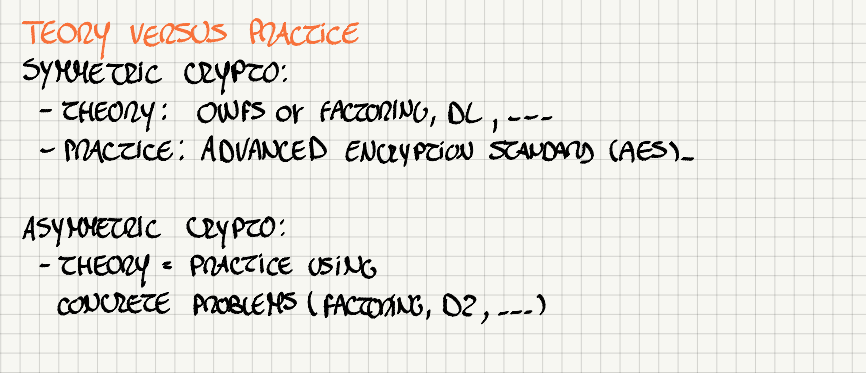 TEORY VERSUS PRACTICE
SYMMETRIC CRYPTO:
- THEORY: OWFS or FACTORING, DL, ---
- PRACTICE: ADVANCED ENCRYPTION STANDARD (AES)_
ASYMMETRIC CRYPTO:
- THEORY = PRACTICE USING
CONCRETE PROBLEMS (FACTORING, D2, ---)